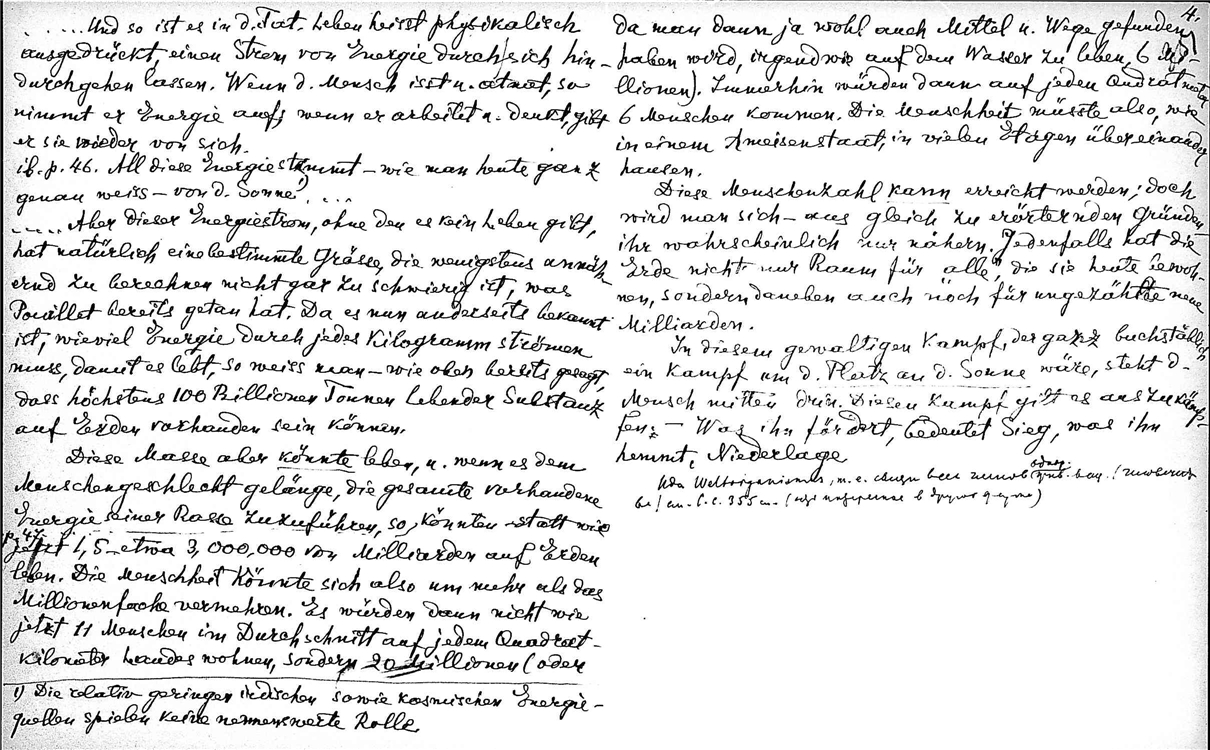 .....Und so ist es in d. Tat. Leben heisst physikalisch
ausgedrückt, einen Strom von Energie durch sich hin-
durchgehen lassen. Wenn d. Mensch isst u. atmet, so
nimmt er Energie auf; wenn er arbeitet u. denkt, gibt
er sie wieder von sich.
ib. p. 46. All diese Energie stammt – wie man heute ganz
genau weiss – von d. Sonne¹)....
..... Aber dieser Energiestrom, ohne den es kein Leben gibt,
hat natürlich eine bestimmte Grösse, die wenigstens annäh-
ernd zu berechnen nicht gar zu schwierig ist, was
Pouillet bereits getan hat. Da es nun anderseits bekannt
ist, wieviel Energie durch jedes Kilogramm strömen
muss, damit es lebt, so weiss man – wie oben bereits gesagt,
dass höchstens 100 Billionen Tonnen lebender Substanz
auf Erden vorhanden sein können.
Diese Masse aber könnte leben, u. wenn es dem
Menschengeschlecht gelänge, die gesamte vorhandene
Energie seiner Rasse zuzuführen, so könnten statt wie
p. 47
jetzt 1,5 – etwa 3,000,000 von Milliarden auf Erden
leben. Die Menschheit könnte sich also um mehr als das
Millionenfache vermehren. Es würden dann nicht wie
jetzt 11 Menschen im Durchschnitt auf jedem Quadrat-
kilometer Landes wohnen, sondern 20 Millionen (oder
1) Die relativ geringen irdischen sowie kosmischen Energie-
quellen spielen keine nennenswerte Rolle
4.
da man dann ja wohl auch Mittel u. Wege gefunden
haben wird, irgendwie auf dem Wasser zu leben, 6 Mi-
llionen). Immerhin würden dann auf jeden Quadratmeter
6 Menschen kommen. Die Menschheit müsste also, wie
in einem Ameisenstaat, in vielen Etagen übereinander
hausen.
Diese Menschenzahl kann erreicht werden; doch
wird man sich – aus gleich zu erörternden Gründen
ihr wahrscheinlich nur nähern. Jedenfalls hat die
Erde nicht nur Raum für „alle", die sie heute bewoh-
nen, sondern daneben auch noch für ungezählte neue
Milliarden.
In diesem gewaltigen Kampf, der ganz buchstäblich
ein Kampf um d. Platz an d. Sonne wäre, steht d.
Mensch mitten drin. Diesen Kampf gilt es auszukämp-
fen: – Was ihn fördert, bedeutet Sieg, was ihn
hemmt, Niederlage
Weltorganismus, т. е. связи всех
355 (